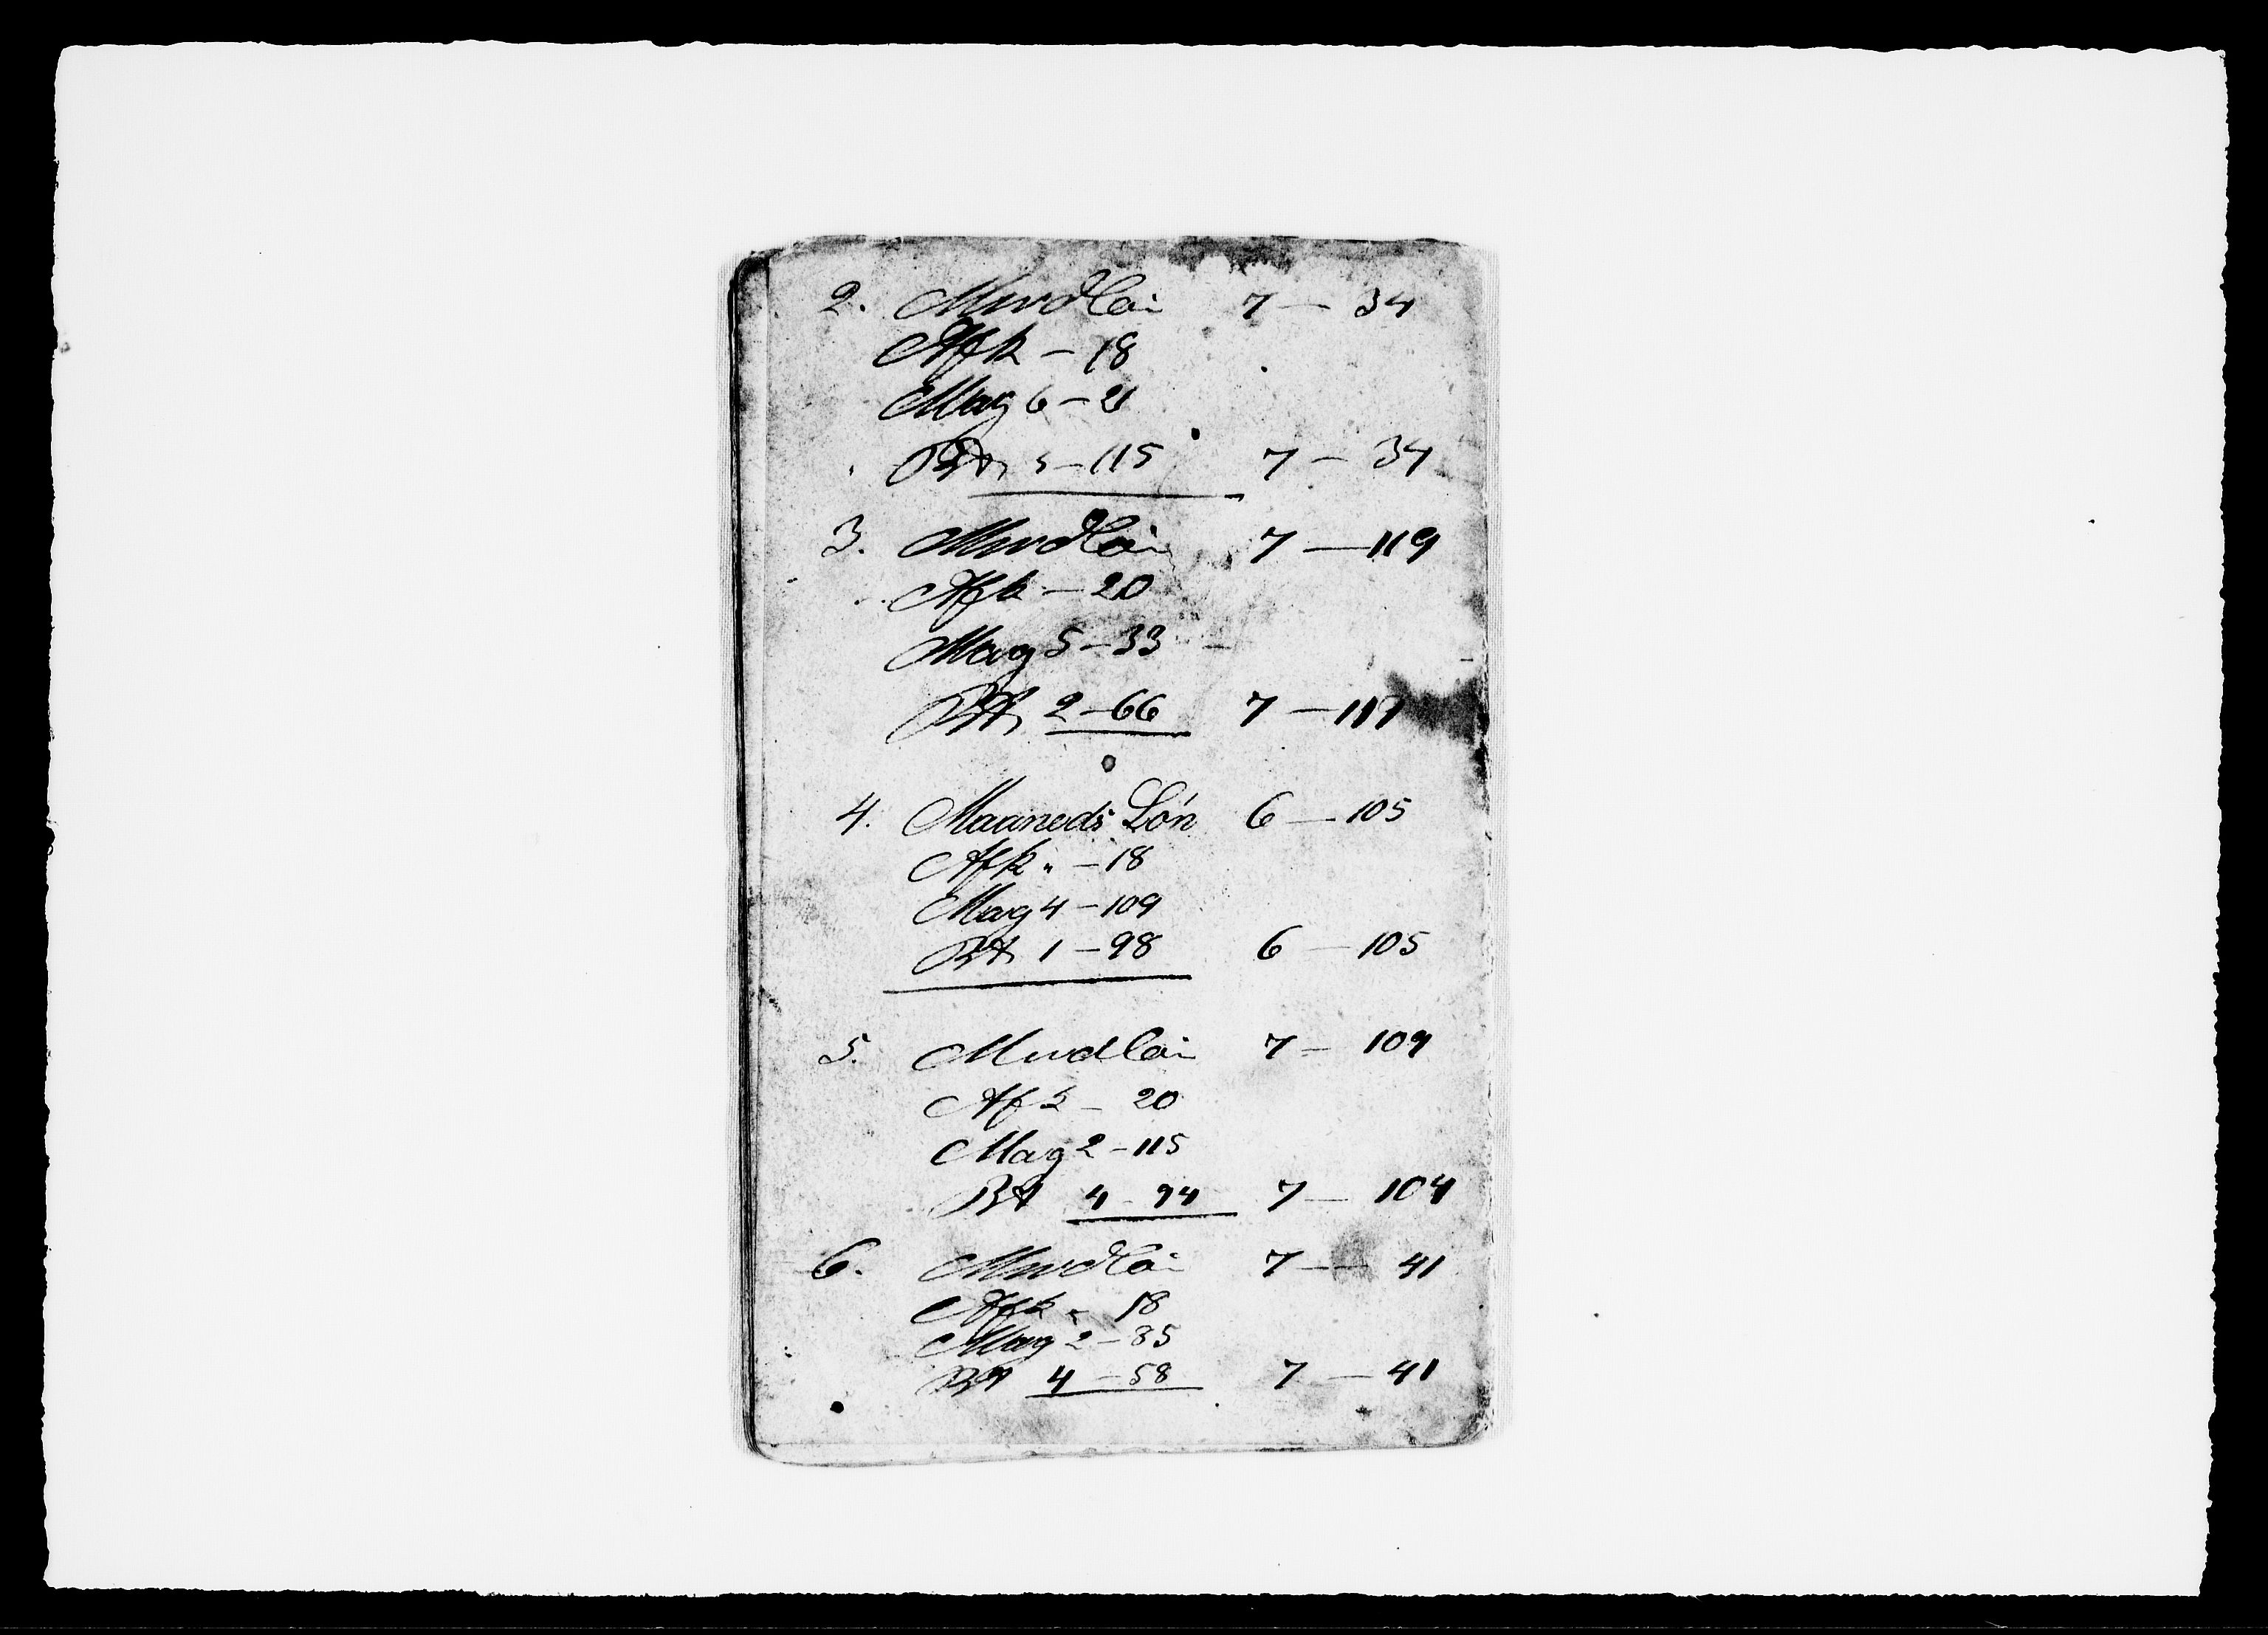 2. Mndlön 7 — 34
Afk — 18
Mag 6 — 21
BA 5 — 115 7 — 34
3. Mndlön 7 — 119
Afk — 20
Mag 5 — 33
BA 2 — 66 7 — 117
4. Maaneds Lön 6 — 105
Afk „ — 18
Mag 4 — 109
BA 1 — 98 6 — 105
5. Mndlön 7 — 109
Afk — 20
Mag 2 — 115
BA 4 — 94 7 — 104
6. Mndlön 7 — 41
Afk „ 18
Mag 2 — 85
BA 4 — 58 7 — 41